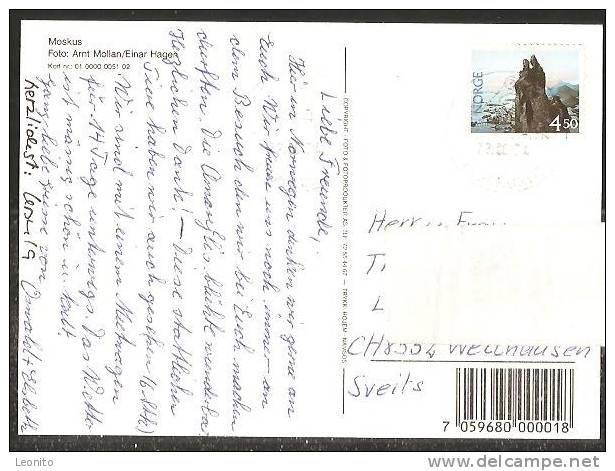 Moskus
Foto: Arnt Mollan/Einar Hagen
Kort nr.: 01 0000 0051 02
Liebe Freunde,
Hier in Norwegen denken wir gerne an
Euch. Wir freuen uns noch immer an
dem Besuch den wir bei Euch machen
durften. Die Amaryllis blühte wunderbar.
Herzlichen Dank! – Diese stattlichen
Tiere haben wir auch gesehen (6 Stk)
Wir sind mit einem Mietwagen
für 14 Tage unterwegs. Das Wetter
ist mässig schön u. kalt.
Ganz liebe Grüsse von
herzlichst: Ursula
COPYRIGHT: FOTO & FOTOPRODUKTER AS TLF. 72 55 44 67 — TRYKK: HOJEM NAMSOS
NORGE
4 50
Herr u. Frau
T
L
CH 8554 Wellhausen
Sveits
7 059680 000018
Leonito
delcampe.net